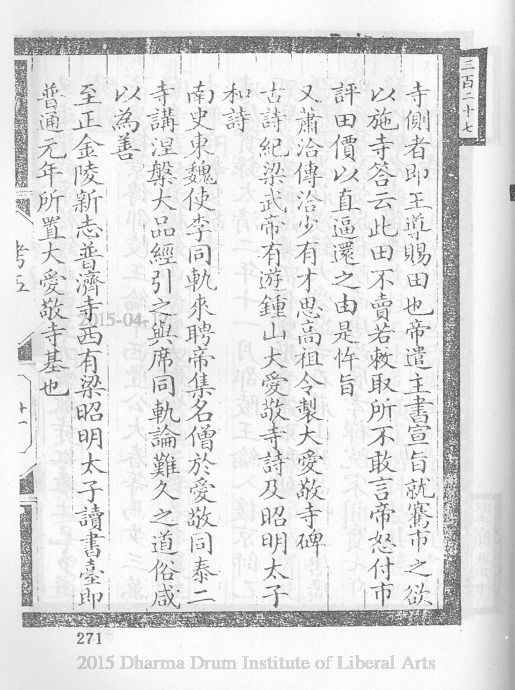 三百二十七
寺側者即王導賜田也帝遣主書宣旨就騫市之欲
以施寺答云此田不賣若敕取所不敢言帝怒付市
評田價以直逼還之由是忤旨
又蕭洽傳洽少有才思高祖令製大愛敬寺碑
古詩紀梁武帝有游鍾山大愛敬寺詩及昭明太子
和詩
南史東魏使李同軌來聘帝集名僧於愛敬同泰二
寺講涅槃大品經引之與席同軌論難久之道俗咸
以為善
至正金陵新志普濟寺西有梁昭明太子讀書臺即
普通元年所置大愛敬寺基也
2015-04-
271
2015 Dharma Drum Institute of Liberal Arts